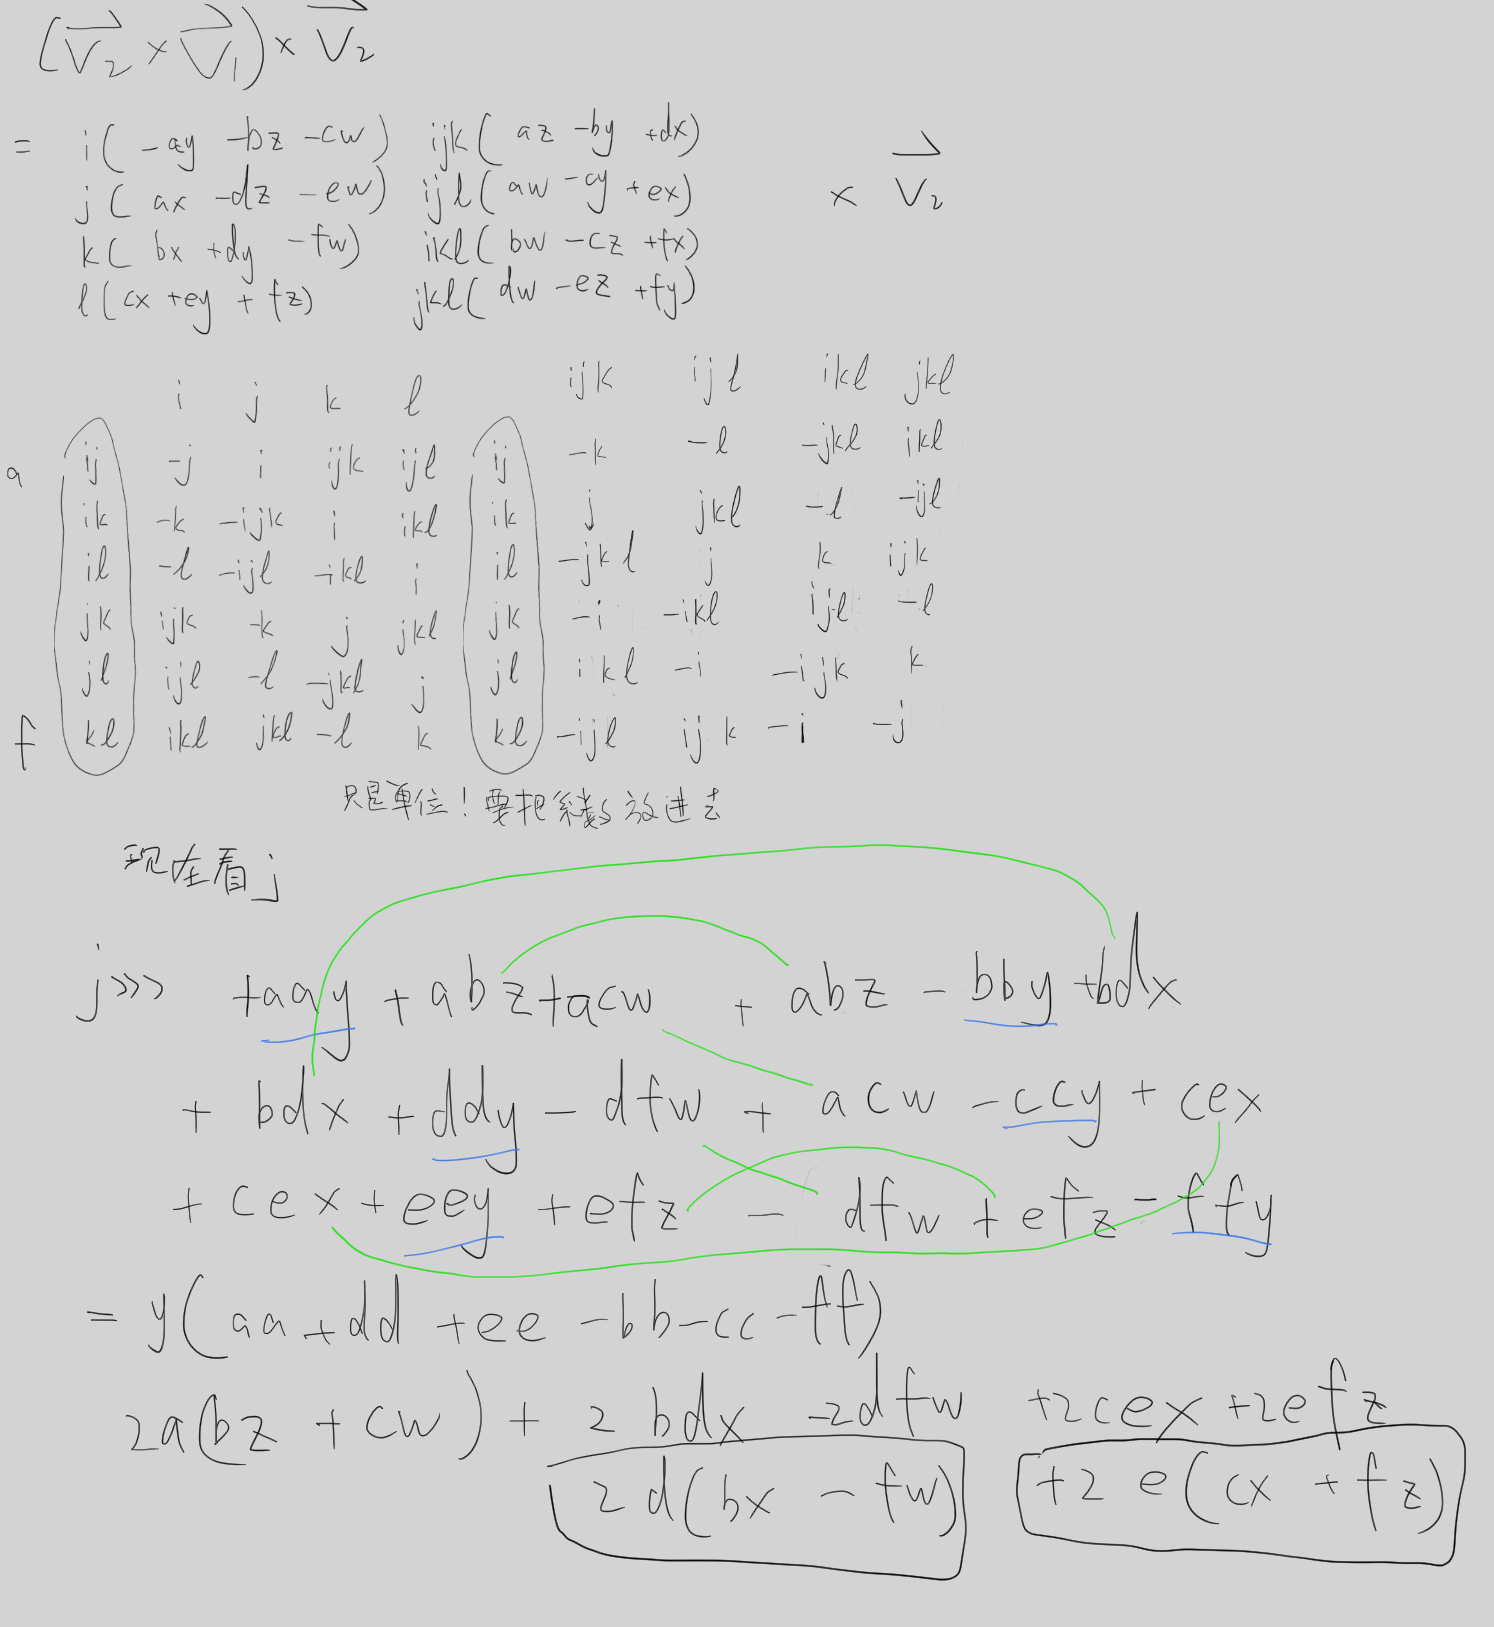 (V₂ × V₁) × V₂
= i( -ay -bz -cw) ijk( az -by +dx)
j( ax -dz -ew) ijl( aw -cy +ex) × V₂
k( bx +dy -fw) ikl( bw -cz +fx)
l( cx +ey + fz) jkl( dw -ez +fy)
i j k l ijk ijl ikl jkl
a ij -j i ijk ijl ij -k -l -jkl ikl
ik -k -ijk i ikl ik j jkl -l -ijl
il -l -ijl -ikl i il -jkl j k ijk
jk ijk -k j jkl jk -i -ikl ijl -l
jl ijl -l -jkl j jl ikl -i -ijk k
f kl ikl jkl -l k kl -ijl ijk -i -j
只是單位！要把系數放进去
现在看j
j >>> +aay + abz +acw + abz - bby +bdx
+ bdx + ddy - dfw + acw - ccy + cex
+ cex + eey + efz - dfw + efz - ffy
= y( aa + dd + ee - bb - cc - ff)
2a(bz + cw) + 2bdx -2dfw +2cex +2efz
2d(bx - fw) +2e(cx + fz)